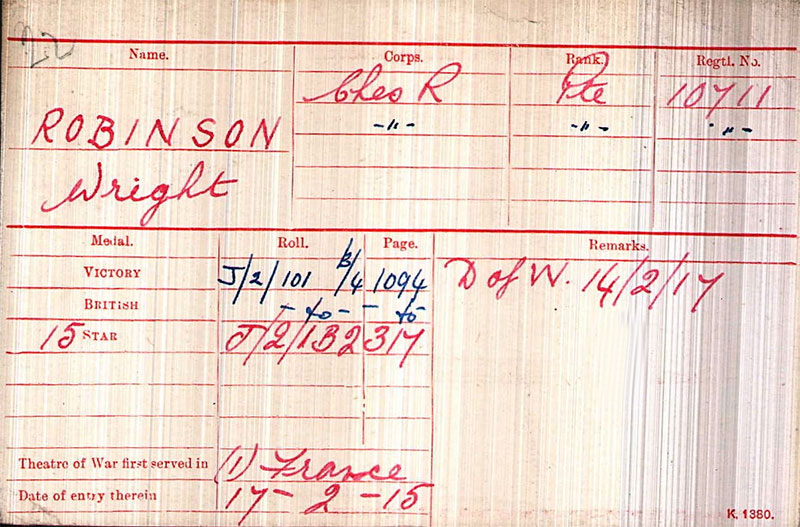 22
Name. Corps. Rank. Regtl. No.
Ches R Pte 10711
ROBINSON -"- -"- -"-
Wright
Medal. Roll. Page. Remarks.
VICTORY J/2/101 B/4 1094 D of W. 14/2/17
BRITISH - do - - do
15 STAR J/2/1B2 317
Theatre of War first served in (1) France
Date of entry therein 17-2-15
K. 1380.